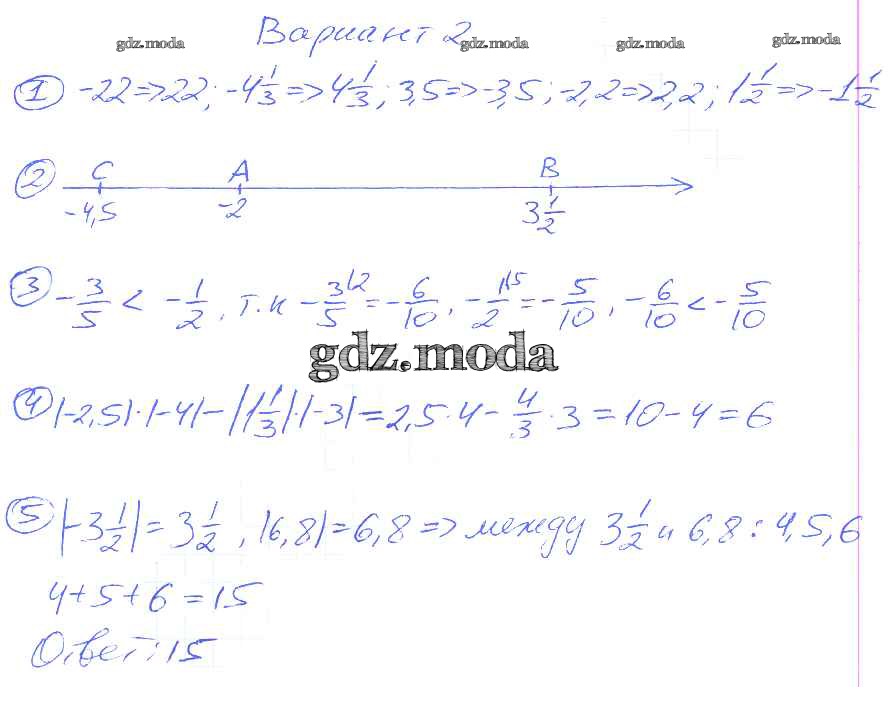 Вариант 2
gdz.moda gdz.moda gdz.moda gdz.moda
1 -22=>22; -4 1/3=>4 1/3; 3,5=>-3,5; -2,2=>2,2; 1 1/2=>-1 1/2
2 C A B
-4,5 -2 3 1/2
3 -3/5 < -1/2, т.к -3/5|2 = -6/10, -1/2|5 = -5/10, -6/10 < -5/10
gdz.moda
4 |-2,5|·|-4|-|1 1/3|·|-3|=2,5·4-4/3·3=10-4=6
5 |-3 1/2|=3 1/2, |6,8|=6,8=> между 3 1/2 и 6,8: 4,5,6
4+5+6=15
Ответ: 15